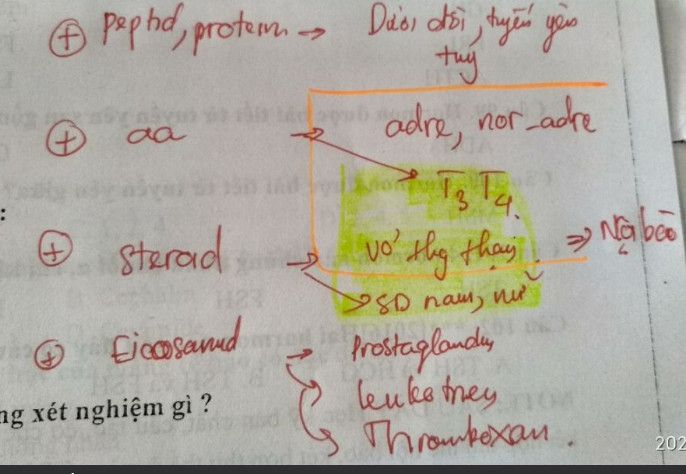 + peptid, protein → Dưới đồi, tuyến yên
tuỵ
+ aa → adre, nor-adre
T3 T4.
:
+ steroid → vỏ thg thận ⇒ Nội bào
SD nam, nữ
+ Eicosanoid → Prostaglandin
leukotrien
ng xét nghiệm gì ?
Thromboxan.
202